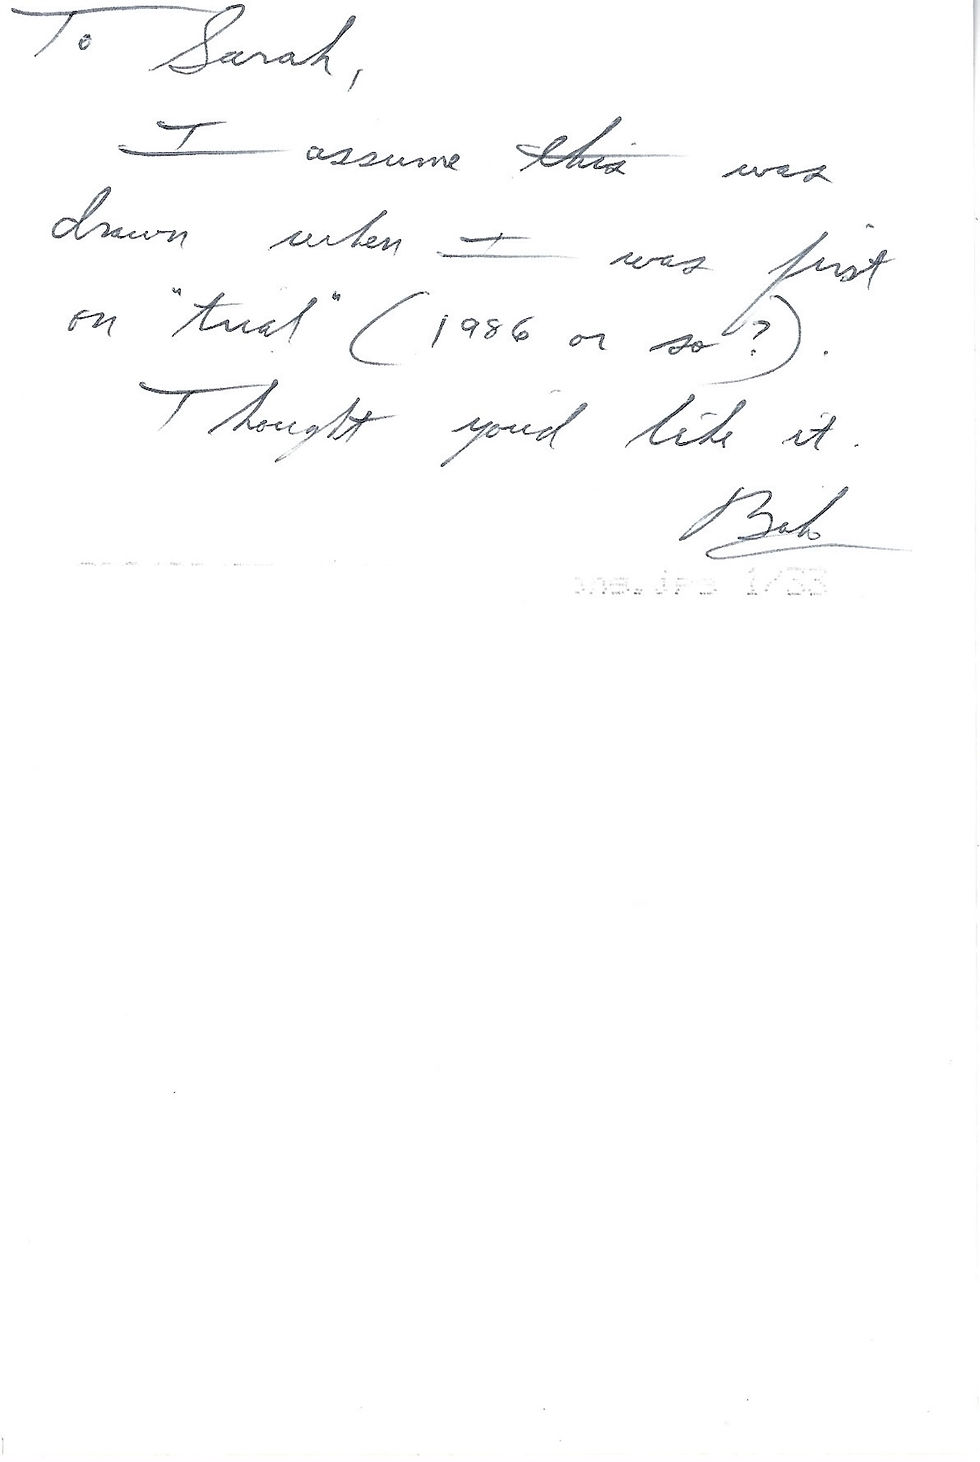 To Sarah,
I assume this was
drawn when I was first
on "trial" (1986 or so?).
Thought you'd like it.
Bob
1/33